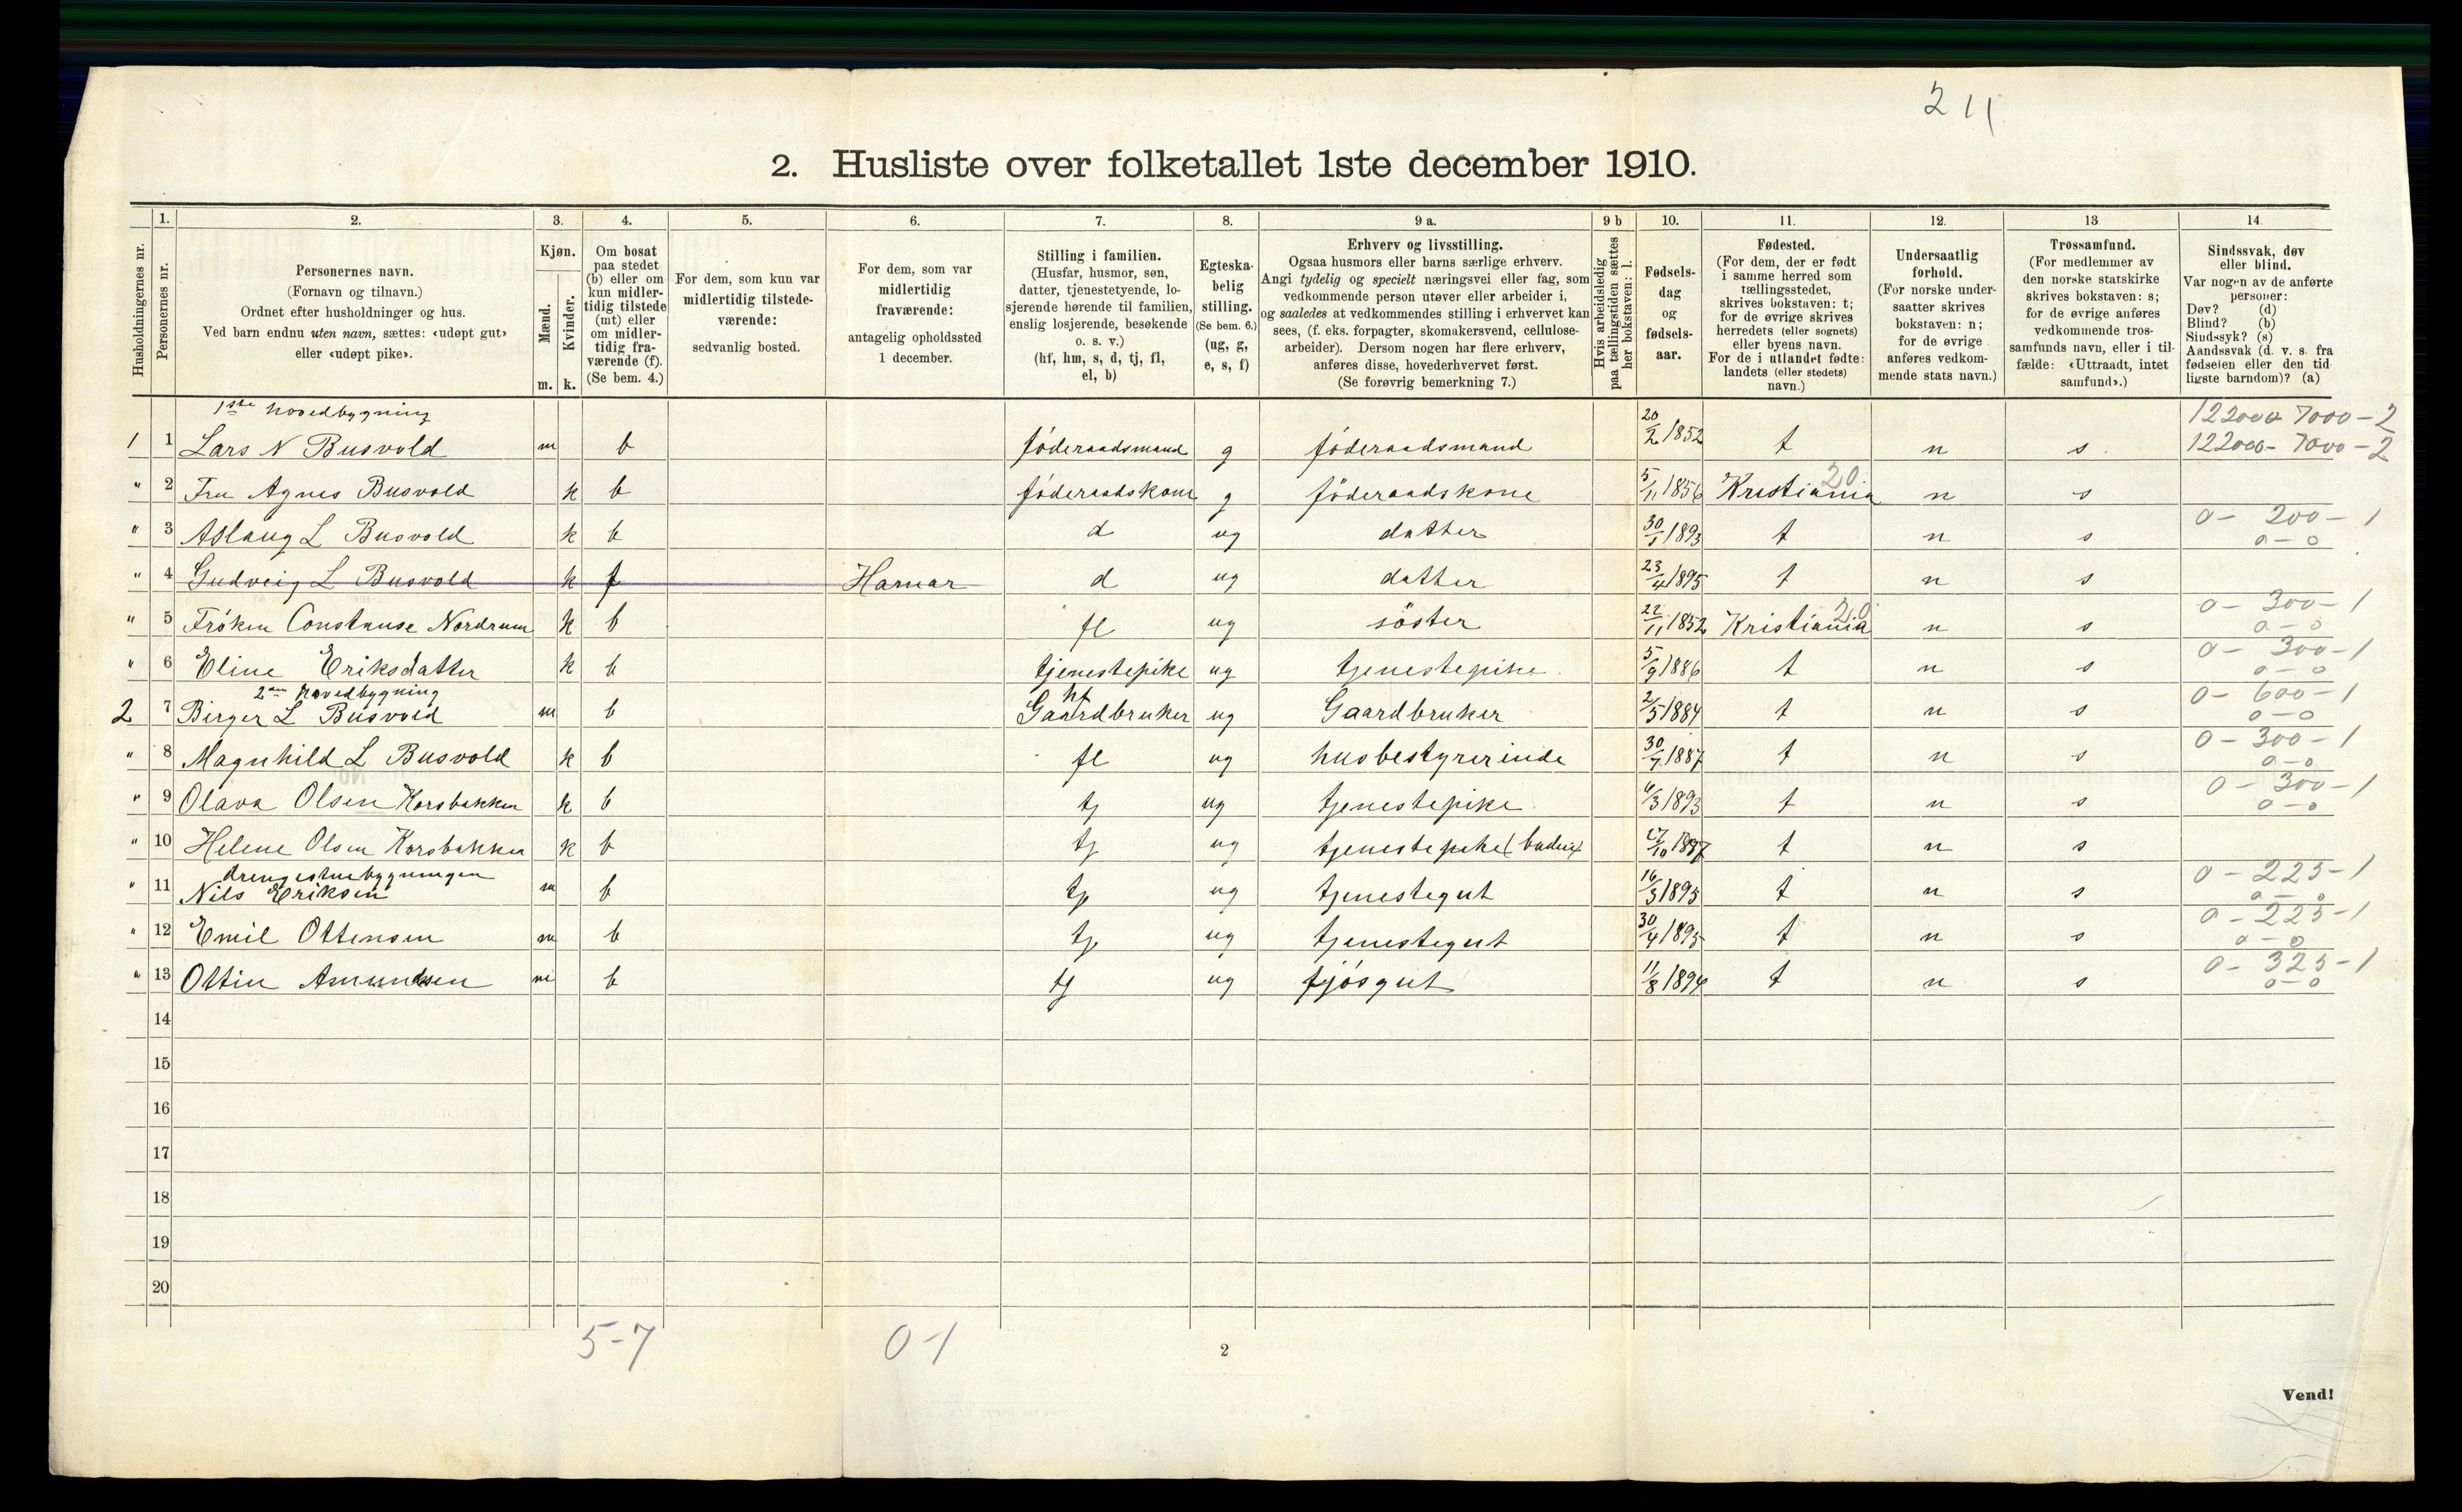 211
2. Husliste over folketallet 1ste december 1910.
1. 2. 3. 4. 5. 6. 7. 8. 9 a. 9 b 10. 11. 12. 13 14.
Husholdningernes nr.
Personernes nr.
Personernes navn.
(Fornavn og tilnavn.)
Ordnet efter husholdninger og hus.
Ved barn endnu uten navn, sættes: «udøpt gut»
eller «udøpt pike».
Kjøn.
Mænd.
Kvinder.
m. k.
Om bosat
paa stedet
(b) eller om
kun midler-
tidig tilstede
(mt) eller
om midler-
tidig fra-
værende (f).
(Se bem. 4.)
For dem, som kun var
midlertidig tilstede-
værende:
sedvanlig bosted.
For dem, som var
midlertidig
fraværende:
antagelig opholdssted
1 december.
Stilling i familien.
(Husfar, husmor, søn,
datter, tjenestetyende, lo-
sjerende hørende til familien,
enslig losjerende, besøkende
o. s. v.)
(hf, hm, s, d, tj, fl,
el, b)
Egteska-
belig
stilling.
(Se bem. 6.)
(ug, g,
e, s, f)
Erhverv og livsstilling.
Ogsaa husmors eller barns særlige erhverv.
Angi tydelig og specielt næringsvei eller fag, som
vedkommende person utøver eller arbeider i,
og saaledes at vedkommendes stilling i erhvervet kan
sees, (f. eks. forpagter, skomakersvend, cellulose-
arbeider). Dersom nogen har flere erhverv,
anføres disse, hovederhvervet først.
(Se forøvrig bemerkning 7.)
Hvis arbeidsledig
paa tællingstiden sættes
her bokstaven: l.
Fødsels-
dag
og
fødsels-
aar.
Fødested.
(For dem, der er født
i samme herred som
tællingsstedet,
skrives bokstaven: t;
for de øvrige skrives
herredets (eller sognets)
eller byens navn.
For de i utlandet fødte:
landets (eller stedets)
navn.)
Undersaatlig
forhold.
(For norske under-
saatter skrives
bokstaven: n;
for de øvrige
anføres vedkom-
mende stats navn.)
Trossamfund.
(For medlemmer av
den norske statskirke
skrives bokstaven: s;
for de øvrige anføres
vedkommende tros-
samfunds navn, eller i til-
fælde: «Uttraadt, intet
samfund».)
Sindssvak, døv
eller blind.
Var nogen av de anførte
personer:
Døv? (d)
Blind? (b)
Sindssyk? (s)
Aandssvak (d. v. s. fra
fødselen eller den tid-
ligste barndom)? (a)
1ste hovedbygning 122000 7000-2
1 1 Lars N Busvold m b føderaadsmand g føderaadsmand 20/2 1852 t n s 122000- 7000-2
" 2 Fru Agnes Busvold k b føderaadskone g føderaadskone 5/11 1856 Kristiania 20 n s
" 3 Aslaug L Busvold k b d ug datter 30/1 1893 t n s 0- 200-1
0-0
" 4 Gudveig L Busvold k f Hamar d ug datter 23/4 1895 t n s
" 5 Frøken Constanse Nordrum k b fl ug søster 22/11 1852 Kristiania 20 n s 0- 300-1
0-0
" 6 Eline Eriksdatter k b tjenestepike ug tjenestepike 5/9 1886 t n s 0- 300-1
0-0
2den hovedbygning hf
2 7 Birger L Busvold m b Gaardbruker ug Gaardbruker 2/5 1884 t n s 0- 600-1
0-0
" 8 Magnhild L Busvold k b fl ug husbestyrerinde 30/7 1887 t n s 0-300-1
0-0
" 9 Olava Olsen Korsbakken k b tj ug tjenestepike 6/3 1893 t n s 0-300-1
0-0
" 10 Helene Olsen Korsbakken k b tj ug tjenestepike (budeie) 17/10 1887 t n s
drengestuebygningen
" 11 Nils Eriksen m b tj ug tjenestegut 16/3 1895 t n s 0-225-1
0-0
" 12 Emil Ottensen m b tj ug tjenestegut 30/4 1895 t n s 0-225-1
0-0
" 13 Ottin Amundsen m b tj ug fjøsgut 11/8 1894 t n s 0-325-1
0-0
14
15
16
17
18
19
20
5-7 0-1
2
Vend!